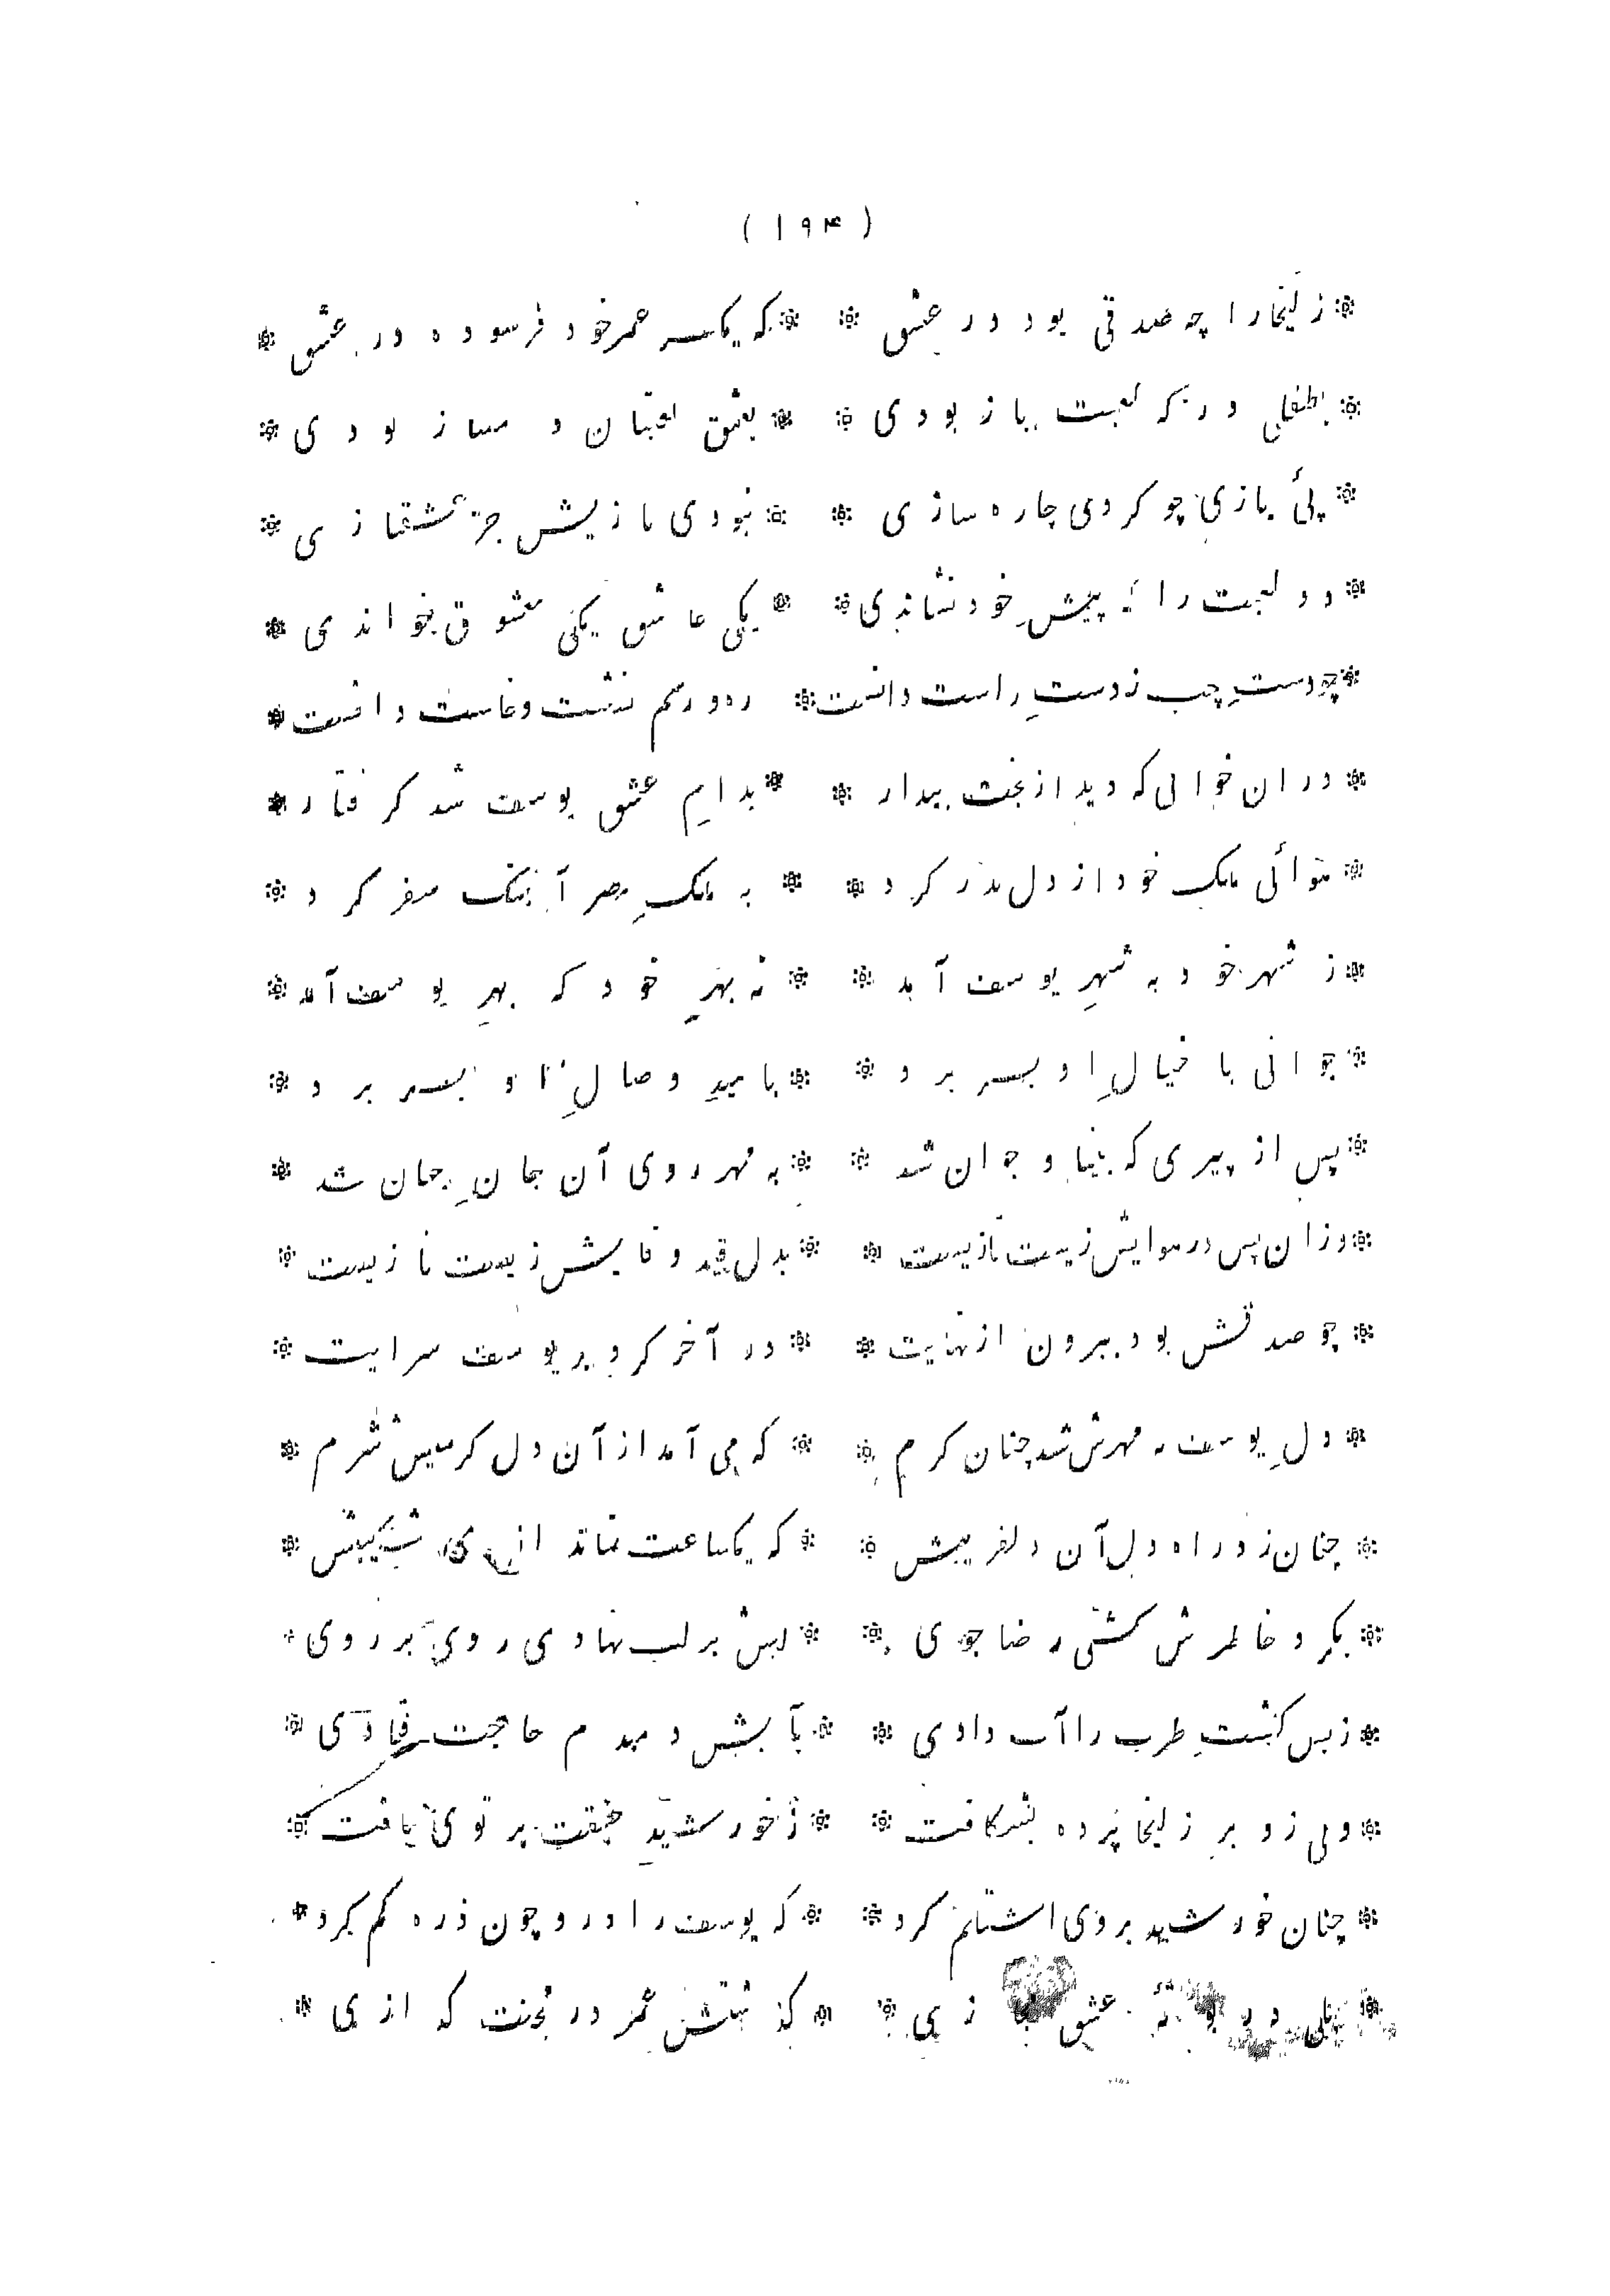 ( ۱۹۴ )
* زلیخا را چه صدقی بود در عشق * * که یکسر عمر خود فرسوده در عشق *
* بطفلی در که لعبت باز بودی * * بعشق لعبتان دمساز بودی *
* پئ بازی چو کردی چاره سازی * * نبودی بازیش جز عشقبازی *
* دو لعبت را که پیشِ خود نشاندی * * یکی عاشق یکی معشوق خواندی *
* چو دستِ چپ ز دستِ راست دانست * ره و رسم نشست و خاست دانست *
* در ان خوابی که دید از بخت بیدار * * بدامِ عشق یوسف شد گرفتار *
* هوائی ملک خود از دل بدر کرد * * به ملکِ مصر آهنگ سفر کرد *
* ز شهر خود به شهرِ یوسف آمد * * نه بهرِ خود که بهرِ یوسف آمد *
* جوانی با خیالِ او بسر برد * * بامیدِ وصالِ او بسر برد *
* پس از پیری که بینا و جوان شد * * به مهر روی آن جانِ جهان شد *
* وزان پس در هوایش زیست تا زیست * * بدل قید وفایش زیست تا زیست *
* چو صدقش بود بیرون از نهایت * * در آخر کرد بر یوسف سرایت *
* دلِ یوسف به مهرش شد چنان گرم * * که می آمد از آن دل گرمیش شرم *
* چنان زد راه دل آن دلفریبش * * که یکساعت نماند از وی شکیبش *
* بگرد خاطرش گشتی رضا جوی * * لبش بر لب نهادی روی بر روی *
* زبس کشتِ طرب را آب دادی * * بآبش دمبدم حاجت فتادی *
* ولی زو بر زلیخا پرده بشکافت * * ز خورشیدِ حقیقت پرتوی یافت *
* چنان خورشید بروی اشتلم کرد * * که یوسف را درو چون ذره گم کرد *
* بلی در بوته عشق مجازی * * گذشتش عمر در محنت گدازی *